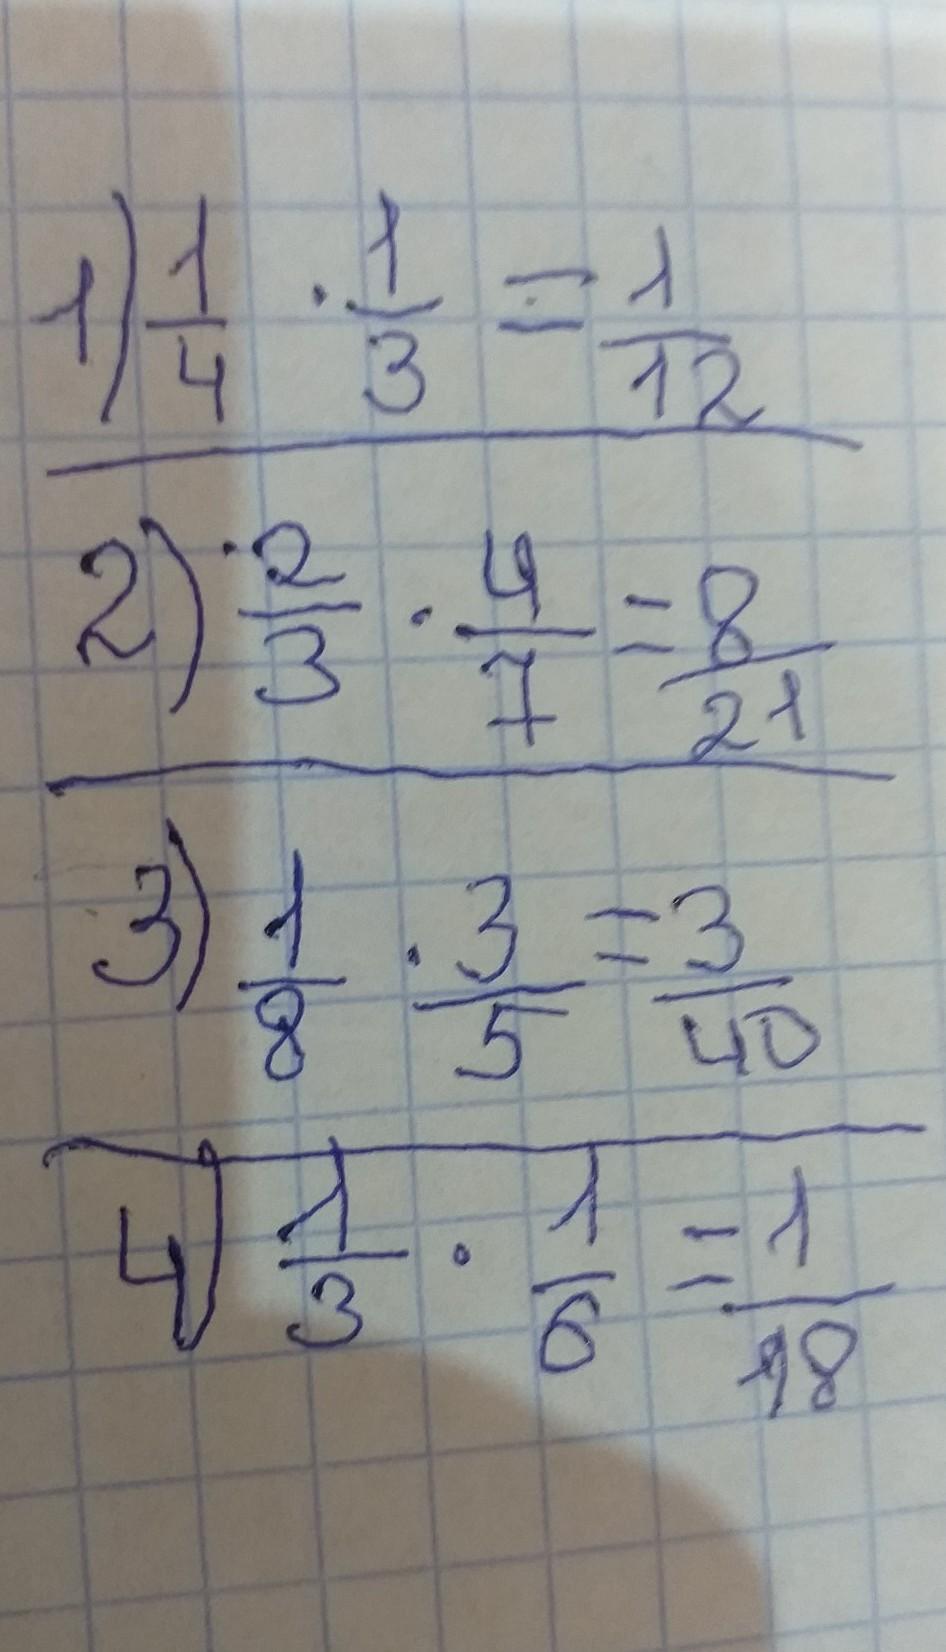 1) 1/4 · 1/3 = 1/12
2) 2/3 · 4/7 = 8/21
3) 1/8 · 3/5 = 3/40
4) 1/3 · 1/6 = 1/18